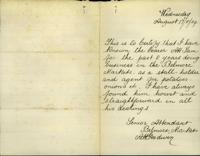 Wednesday
August 17/04
This is to Certify that I have
known the Bearer Ah Sam
for the past 8 years doing
business in the Belmore
Markets. as a stall-holder
and agent for potatoes
onions etc. I have always
found him honest and
straightforward in all
his dealings
Senior Attendant
Belmore Markets